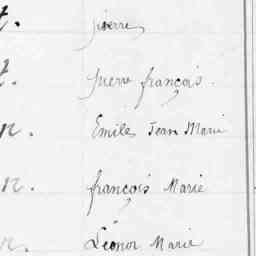 t. pierre
t. pierre françois.
n. Emile Jean Marie
n. françois Marie
n. Léonor Marie